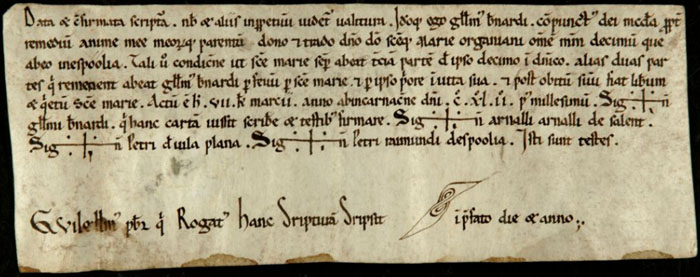 Data & c̄firmata scripta . nb & aliis inꝑpetuū uidet ualitura . Idcq̨ ego gllm̄ bnardi . cōpunct dei mcđa , ꝓpt
remediū anime mee meorq̨ parentū . dono & trado dn̄o dō scēq̨ Marie organiani om̄e mm̄ decimū que
abeo inespoolia . Tali ū condicn̄e ut sc̄e marie semꝑ abeat t̄cia parte đ ipso decimo i dn̄ico . alias duas par
tes q̄ remanent abeat gllm̄ bnardi ꝑ feuū ꝑ sc̄e marie . & ꝑ ipso pore in uita sua . & post obitū suū fiat libum
& q̄etū sc̄e marie . Actū ē h . vii . k marcii . anno abincarnacn̄e dn̄i . c̄ . xl . ii . p millesimū . Sig n̄
gllmi bnardi . q̄ hanc cartā iussit scribe & testib firmare . Sig n̄ arnalli arnalli de salent .
Sig n̄ petri đ uila plana . Sig n̄ petri raimundi despoolia . Isti sunt testes .
Guilellm pbr q̄ Rogat hanc scripturā scripsit ip̄fato die & anno .,